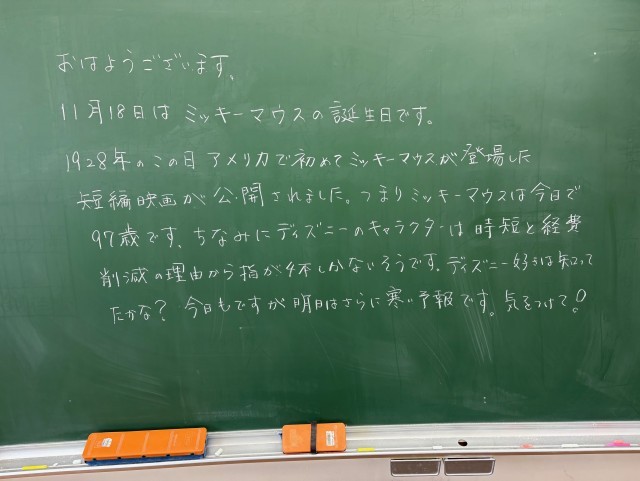 おはようございます、
11月18日は ミッキーマウスの誕生日です。
1928年のこの日 アメリカで初めてミッキーマウスが登場した
短編映画が公開されました。つまりミッキーマウスは今日で
97歳です、ちなみにディズニーのキャラクターは時短と経費
削減の理由から指が4本しかないそうです。ディズニー好きは知って
たかな？ 今日もですが明日はさらに寒い予報です。気をつけて！